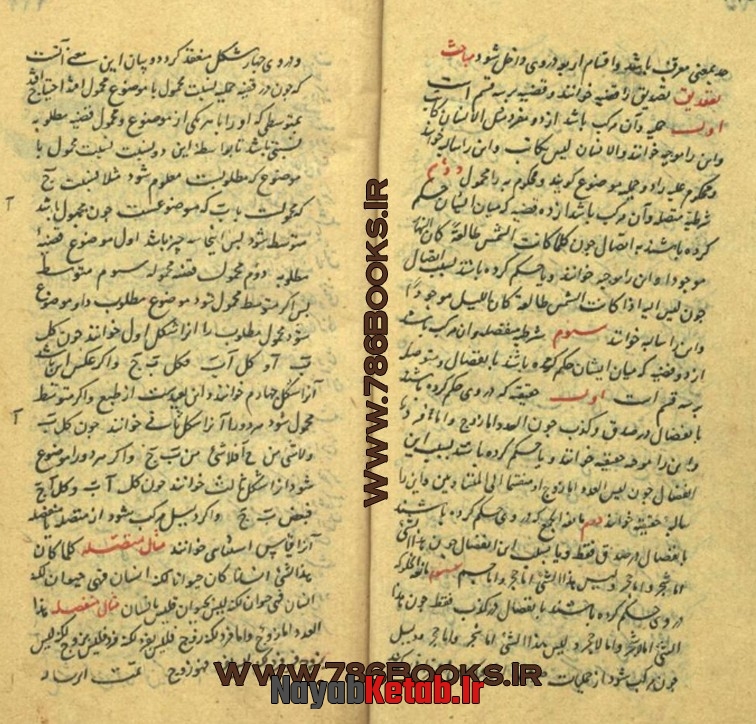 حد بمعنی معرف باشد و اقسام اربعه در وی داخل شود مباحث
تصدیق تصدیق را قضیه خوانند و قضیه بر سه قسم است
اول حملیه و آن مرکب باشد از دو مفرد مثل الانسان کاتب
و این را موجبه خوانند والانسان لیس بکاتب و این را سالبه خوانند
و محکوم علیه را در حملیه موضوع گویند و محکوم به را محمول دوم
شرطیه متصله و آن مرکب باشد از دو قضیه که میان ایشان حکم
کرده باشند به اتصال چون کلما کانت الشمس طالعة کان النهار
موجودا و این را موجبه خوانند و یا حکم کرده باشند بسلب اتصال
چون لیس البته اذا کانت الشمس طالعة کان اللیل موجودا
و این را سالبه خوانند سوم شرطیه منفصله و آن مرکب باشد
از دو قضیه که میان ایشان حکم کرده باشند بانفصال و منفصله
بر سه قسم است اول حقیقیه که در وی حکم کرده باشند
بانفصال در صدق و کذب چون العدد اما زوج و اما فرد
و این را موجبه حقیقیه خوانند و یا حکم کرده باشند بسلب این
انفصال چون لیس العدد اما زوج او منقسما الی المتساویین و این را
سالبه حقیقیه خوانند دوم مانعة الجمع که در وی حکم کرده باشند
بانفصال در صدق فقط و یا بسلب این انفصال چون هذا الشئ
اما شجر و اما حجر و لیس هذا الشئ اما حجر و اما جسم سوم مانعة الخلو که
در وی حکم کرده باشند بانفصال در کذب فقط چون هذا
الشئ اما لاشجر و اما لاحجر و لیس هذا الشئ اما شجر و اما حجر و دلیل
چون مرکب شود از حملیات
و در وی چهار شکل منعقد گردد و بیان این معنی آنست
که چون در قضیه حملیه نسبت محمول با موضوع مجهول افتد احتیاج افتد
بمتوسطی که او را با هر یکی از موضوع و محمول قضیه مطلوبه
نسبتی باشد تا بواسطه این دو نسبت نسبت محمول با
موضوع که مطلوبست معلوم شود مثلا نسبت ج
که محمولست با ب که موضوعست چون مجهول باشد
متوسط شود پس اینجا سه چیز باشد اول موضوع قضیه
مطلوبه دوم محمول قضیه مطلوبه سوم متوسط
پس اگر متوسط محمول شود موضوع مطلوب را و موضوع
شود محمول مطلوب را آنرا شکل اول خوانند چون کل
ب آ و کل آ ج فکل ب ج و اگر عکس این باشد
آنرا شکل چهارم خوانند و این بعیدست از طبع و اگر متوسط
محمول شود هر دو را آنرا شکل ثانی خوانند چون کل ب آ
ولاشئ من ج آ فلاشئ من ب ج و اگر هر دو را موضوع
شود آنرا شکل ثالث خوانند چون کل آ ب و کل آ ج
فبعض ب ج و اگر دلیل مرکب شود از متصله یا منفصله
آنرا قیاس استثنائی خوانند مثال متصله کلما کان
هذا الشئ انسانا کان حیوانا لکنه انسان فهو حیوان لکنه
لیس بحیوان فلیس بانسان مثال منفصله هذا
العدد اما زوج و اما فرد لکنه زوج فلیس بفرد لکنه فرد فلیس بزوج لکنه لیس
فهو زوج تمت الرساله
آ
آ
WWW.786Books.IR
WWW.786Books.IR
NayabKetab.Ir